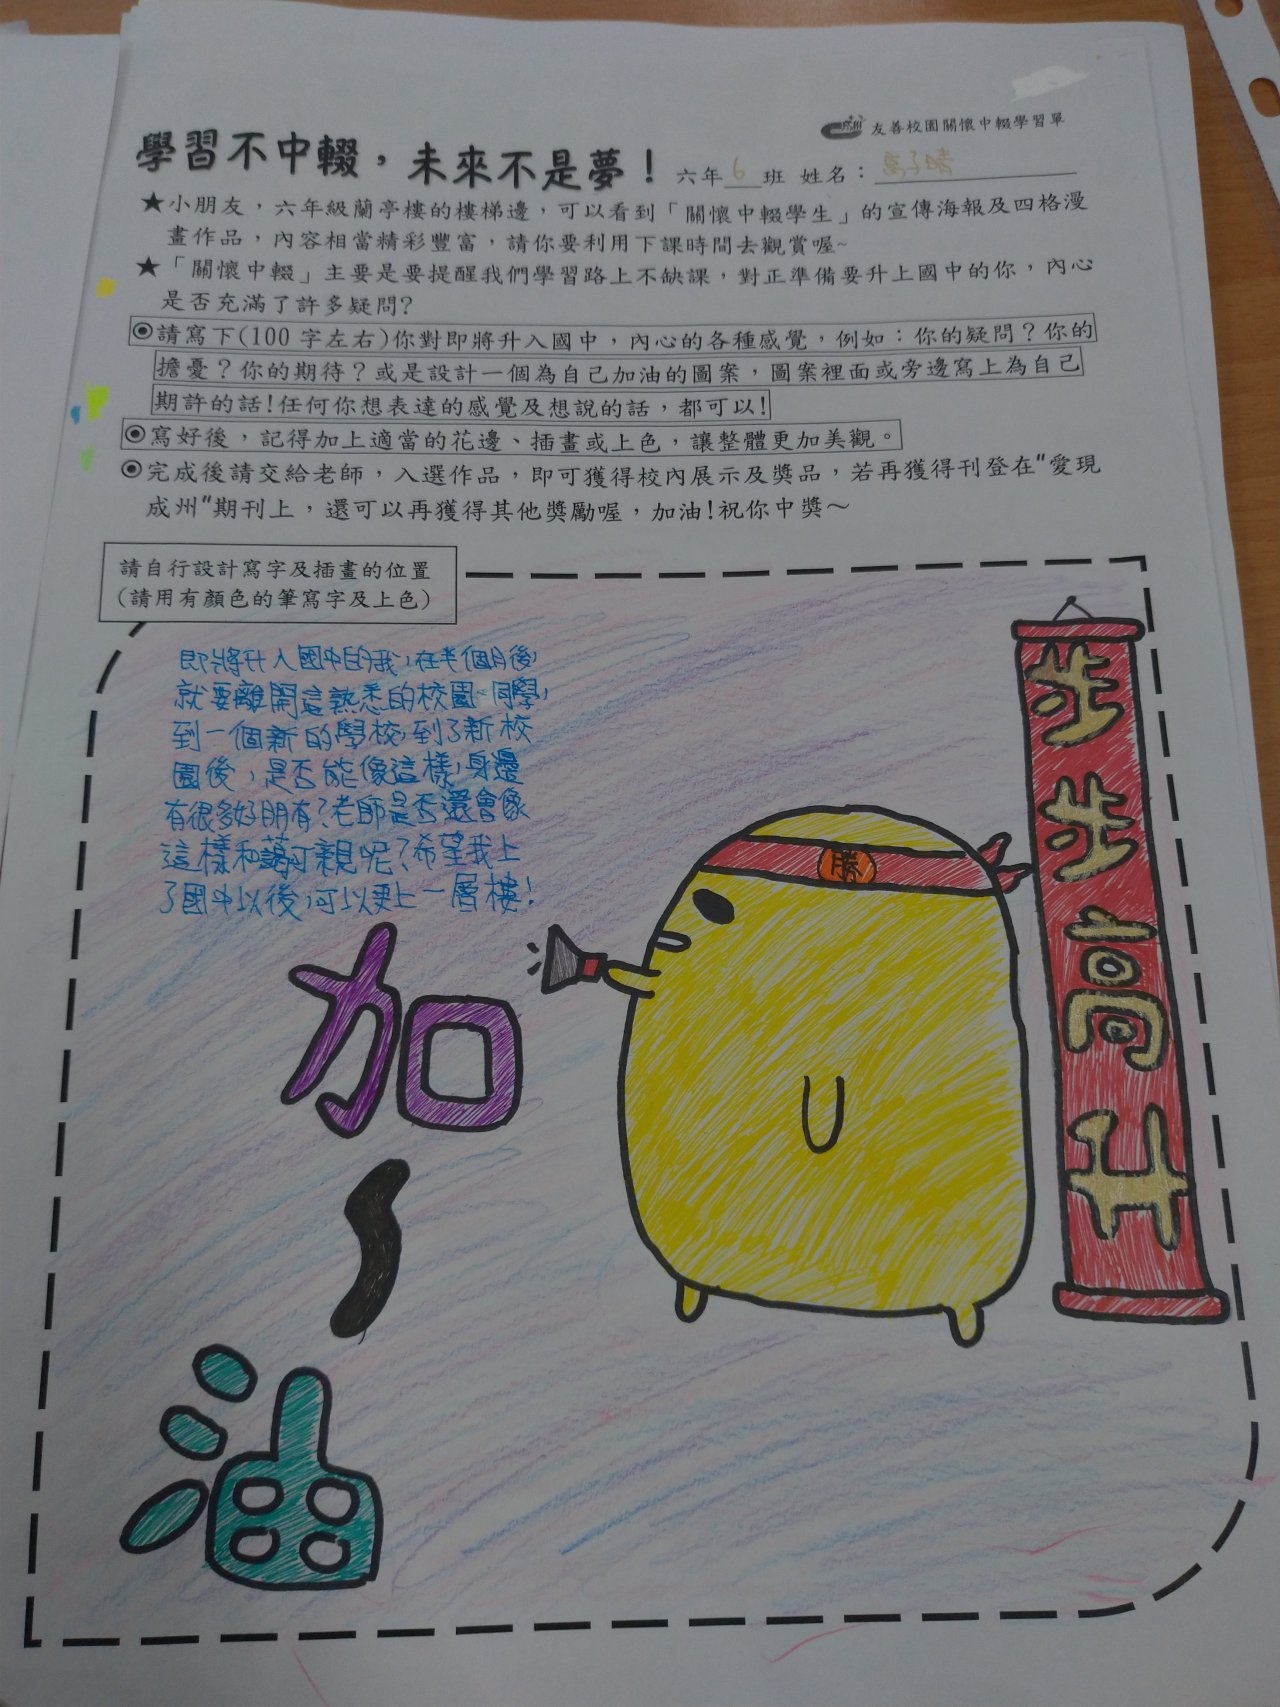 友善校園關懷中輟學習單
學習不中輟，未來不是夢！ 六年6班 姓名：
★小朋友，六年級蘭亭樓的樓梯邊，可以看到「關懷中輟學生」的宣傳海報及四格漫
畫作品，內容相當精彩豐富，請你要利用下課時間去觀賞喔~
★「關懷中輟」主要是要提醒我們學習路上不缺課，對正準備要升上國中的你，內心
是否充滿了許多疑問?
◉請寫下(100字左右)你對即將升入國中，內心的各種感覺，例如：你的疑問？你的
擔憂？你的期待？或是設計一個為自己加油的圖案，圖案裡面或旁邊寫上為自己
期許的話!任何你想表達的感覺及想說的話，都可以!
◉寫好後，記得加上適當的花邊、插畫或上色，讓整體更加美觀。
◉完成後請交給老師，入選作品，即可獲得校內展示及獎品，若再獲得刊登在"愛現
成州"期刊上，還可以再獲得其他獎勵喔，加油!祝你中獎～
請自行設計寫字及插畫的位置
（請用有顏色的筆寫字及上色）
即將升入國中的我，在半個月後，
就要離開這熟悉的校園、同學，
到一個新的學校，到了新校
園後，是否能像這樣，身邊
有很多好朋有？老師是否還會像
這樣和藹可親呢？希望我上
了國中以後，可以更上一層樓！
加～油
勝
步步高升